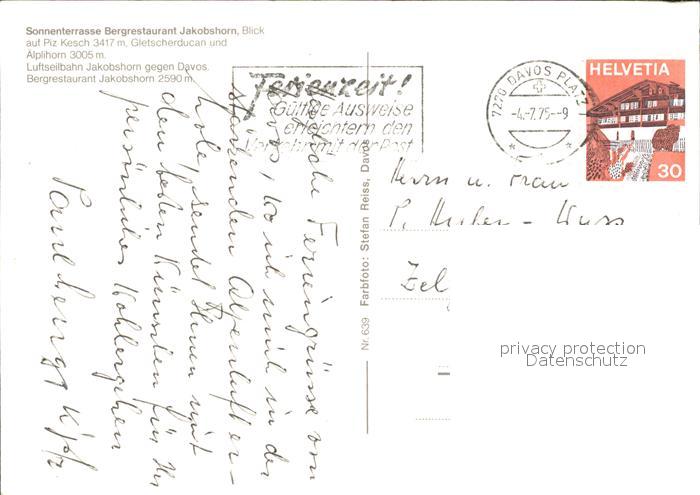 Sonnenterrasse Bergrestaurant Jakobshorn, Blick
auf Piz Kesch 3417 m, Gletscherducan und
Älplihorn 3005 m.
Luftseilbahn Jakobshorn gegen Davos.
Bergrestaurant Jakobshorn 2590 m.
Ferienzeit!
Gültige Ausweise
erleichtern den
Verkehr mit der Post
7270 DAVOS PLATZ
-4.-7.75--9
HELVETIA
30
Feriengrüsse von
Davos, wo ich mich in der
stärkenden Alpenluft er-
hole, sendet Ihnen mit
den besten Wünschen für Ihr
persönliches Wohlergehen
Nr. 639 Farbfoto: Stefan Reiss, Davos
Herrn u. Frau
P. Huber -
Zel
privacy protection
Datenschutz